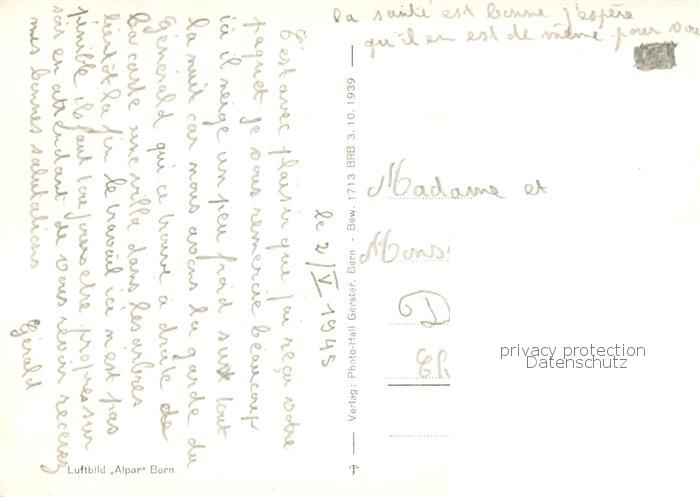 la santé est bonne j'espère
qu'il en est de même pour vou
le 2/V 1945
C'est avec plaisir que j'ai reçu votre
paquet je vous remercie beaucoup
ici il neige un peu froid surtout
la nuit car nous avons la garde du
Général qui ce trouve à droite de
la carte une villa dans les arbres
bientôt la fin le travail ici n'est pas
pénible il faut toujours etre propres sur
soi en attendant de vous revoir recevez
mes bonnes salutations
Gérald
Madame et
Monsi
D
Verlag: Photo-Hall Gerster, Bern - Bew. 1713 BRB 3. 10. 1939
Luftbild „Alpar" Bern
privacy protection
Datenschutz